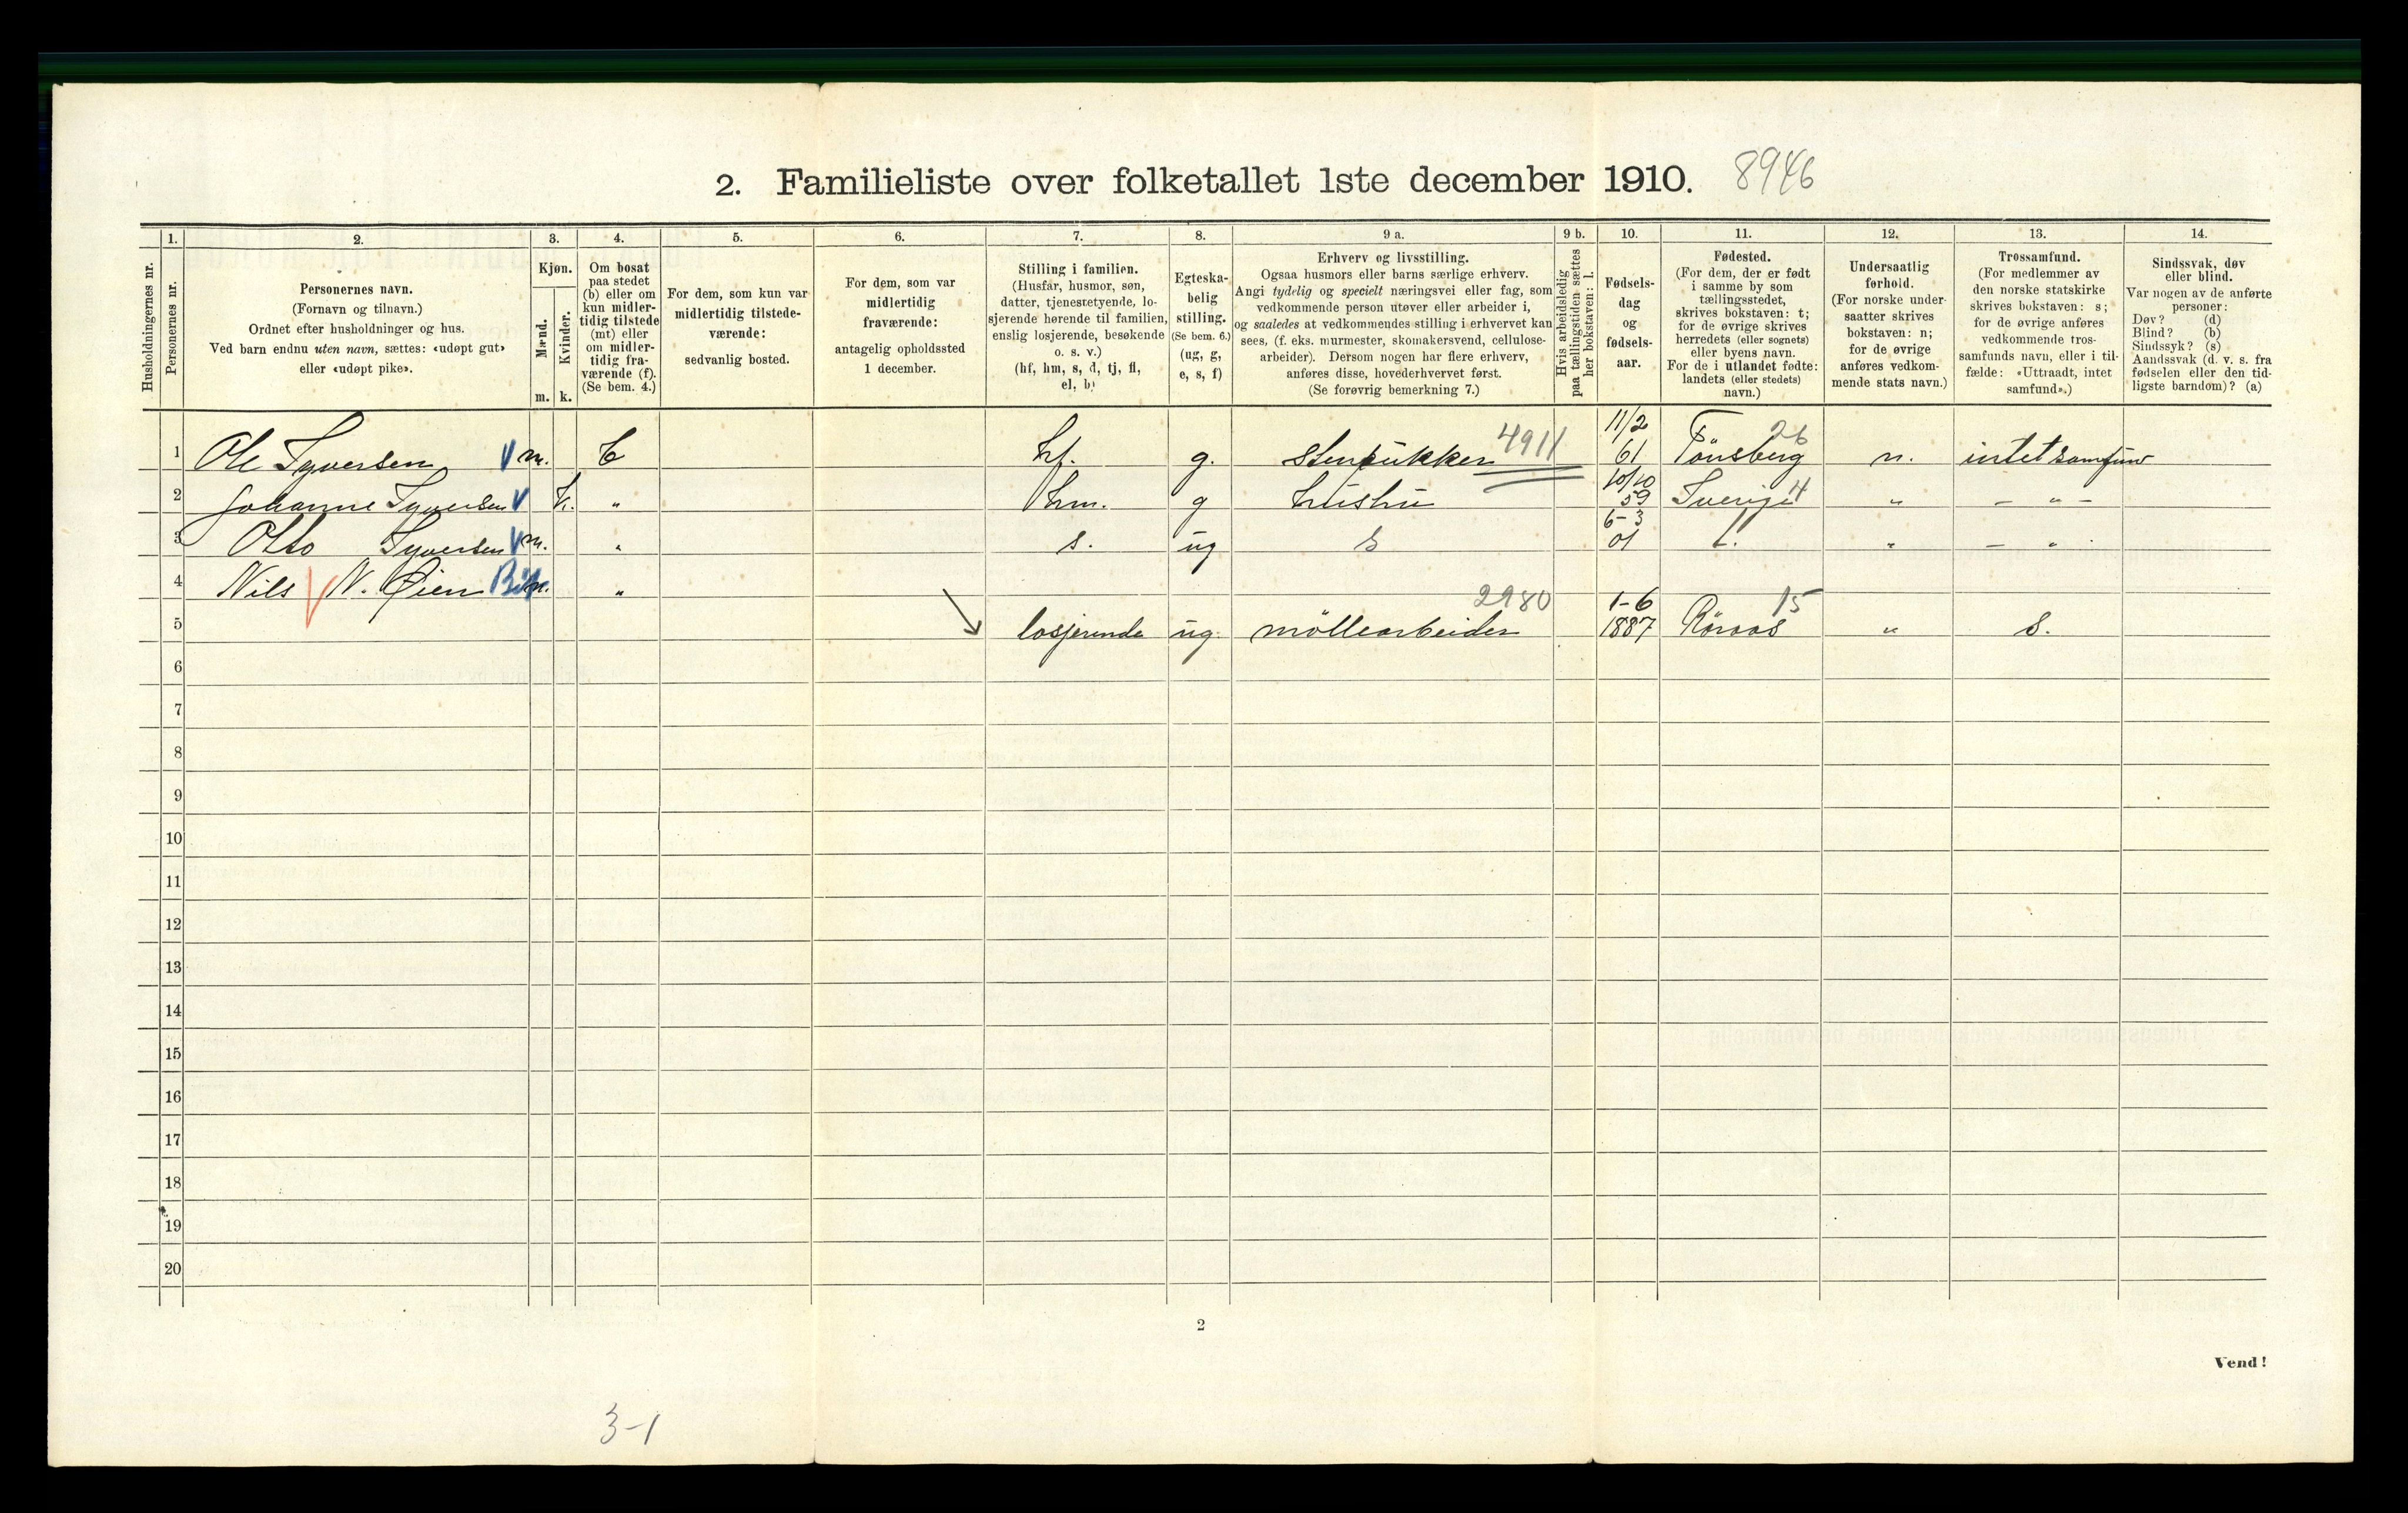 2. Familieliste over folketallet 1ste december 1910. 8946
Husholdningernes nr.
1.
Personernes nr.
2.
Personernes navn.
(Fornavn og tilnavn.)
Ordnet efter husholdninger og hus.
Ved barn endnu uten navn, sættes: «udøpt gut»
eller «udøpt pike».
3.
Kjøn.
Mænd.
Kvinder.
m. k.
4.
Om bosat
paa stedet
(b) eller om
kun midler-
tidig tilstede
(mt) eller
om midler-
tidig fra-
værende (f).
(Se bem. 4.)
5.
For dem, som kun var
midlertidig tilstede-
værende:
sedvanlig bosted.
6.
For dem, som var
midlertidig
fraværende:
antagelig opholdssted
1 december.
7.
Stilling i familien.
(Husfar, husmor, søn,
datter, tjenestetyende, lo-
sjerende hørende til familien,
enslig losjerende, besøkende
o. s. v.)
(hf, hm, s, d, tj, fl,
el, b)
8.
Egteska-
belig
stilling.
(Se bem. 6.)
(ug, g,
e, s, f)
9 a.
Erhverv og livsstilling.
Ogsaa husmors eller barns særlige erhverv.
Angi tydelig og specielt næringsvei eller fag, som
vedkommende person utøver eller arbeider i,
og saaledes at vedkommendes stilling i erhvervet kan
sees, (f. eks. murmester, skomakersvend, cellulose-
arbeider). Dersom nogen har flere erhverv,
anføres disse, hovederhvervet først.
(Se forøvrig bemerkning 7.)
9 b.
Hvis arbeidsledig
paa tællingstiden sættes
her bokstaven: l.
10.
Fødsels-
dag
og
fødsels-
aar.
11.
Fødested.
(For dem, der er født
i samme by som
tællingsstedet,
skrives bokstaven: t;
for de øvrige skrives
herredets (eller sognets)
eller byens navn.
For de i utlandet fødte:
landets (eller stedets)
navn.)
12.
Undersaatlig
forhold.
(For norske under-
saatter skrives
bokstaven: n;
for de øvrige
anføres vedkom-
mende stats navn.)
13.
Trossamfund.
(For medlemmer av
den norske statskirke
skrives bokstaven: s;
for de øvrige anføres
vedkommende tros-
samfunds navn, eller i til-
fælde: «Uttraadt, intet
samfund».)
14.
Sindssvak, døv
eller blind.
Var nogen av de anførte
personer:
Døv? (d)
Blind? (b)
Sindssyk? (s)
Aandssvak (d. v. s. fra
fødselen eller den tid-
ligste barndom)? (a)
1 Ole Syversen V m. b hf. g. Stenpukker 4911 11/2 61 Tönsberg 26 n. intet samfund
2 Johanne Syversen V k. " hm. g hustru 10/10 59 Sverige 4 " - " -
3 Otto Syversen V m. " s. ug S 6-3 01 t. " - "
4 Nils V N. Øien m. "
5 losjerende ug. möllearbeider 2980 1-6 1887 Röraas 15 " s.
6
7
8
9
10
11
12
13
14
15
16
17
18
19
20
2
Vend!
3-1